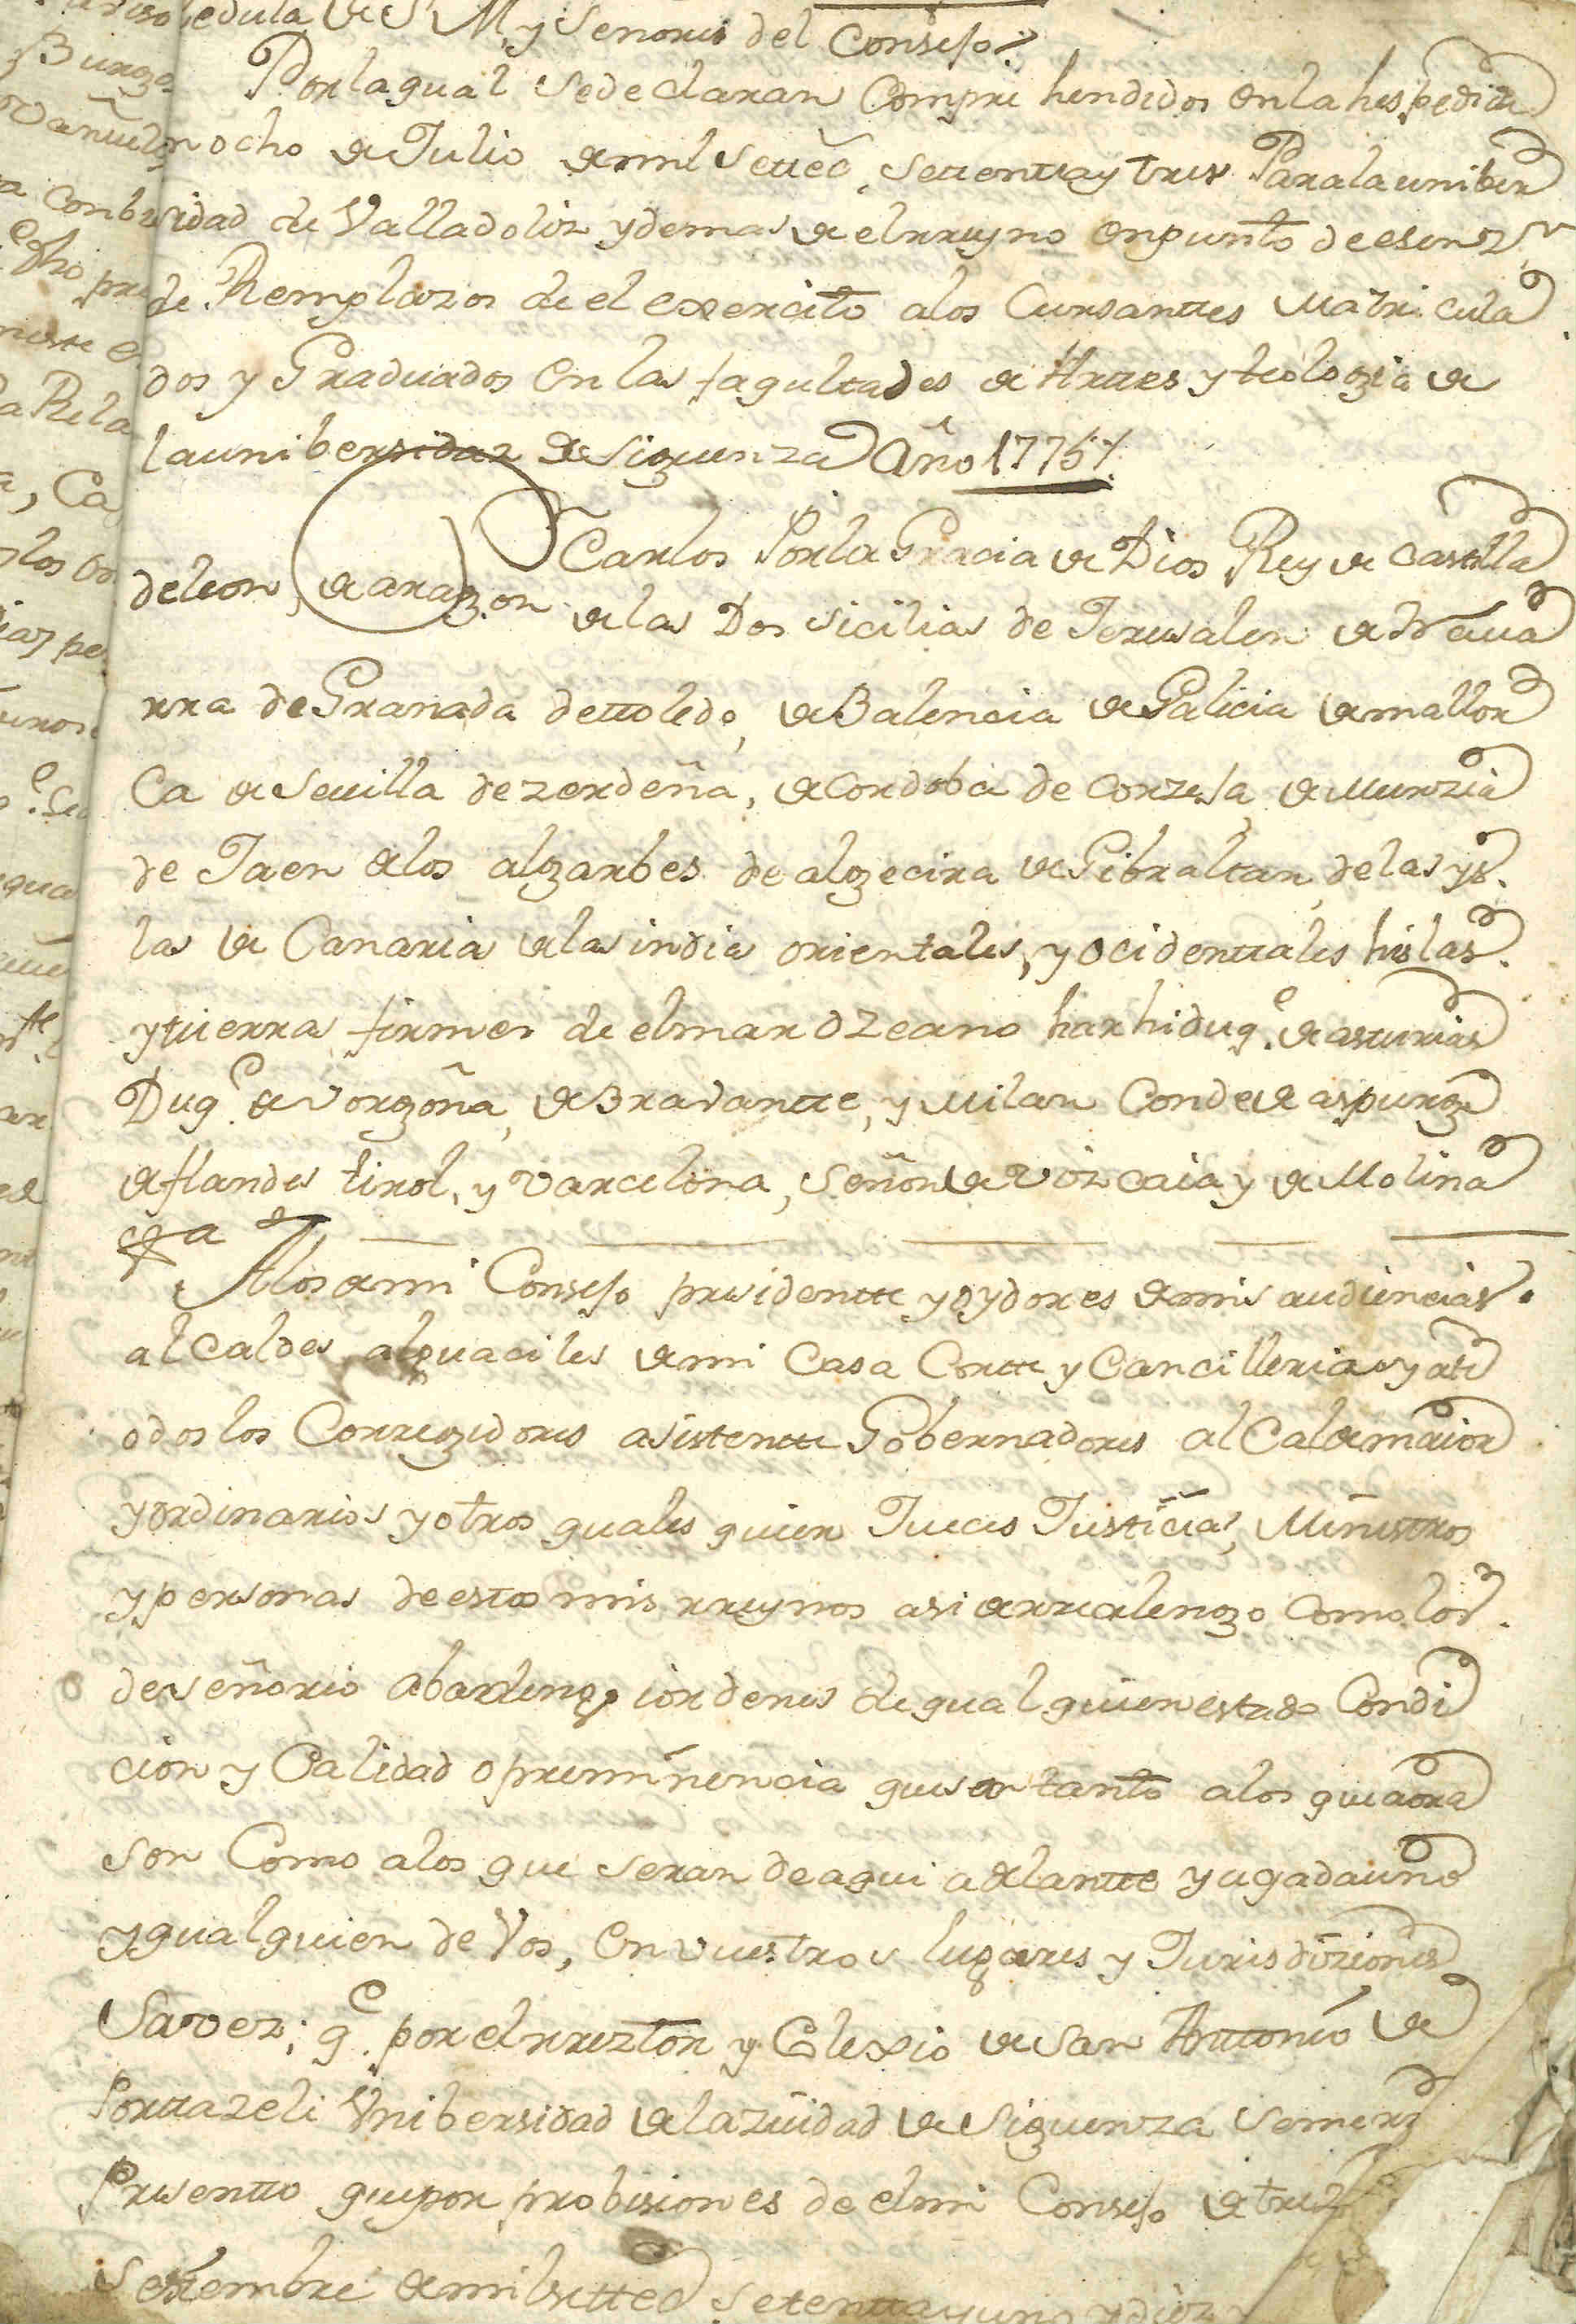 cedula de S M y Señores del Consejo
Por la qual se declaran Compre hendidos en la hespedida
en ocho de Julio de mil Settec. settenta y tres Para la uniber
sidad de Valladoliz y demas de el rreyno en punto de esenz.n
de Remplazos de el exercito a los Cursanttes Matricula
dos y Graduados en las fagultades de Arttes y teologia de
la unibersidaz de Siguenza Año 1775
Carlos Por la Gracia de Dios Rey de Castilla
de leon, de aragon de las Dos Sicilias de Jerusalen de Nava
rra de Granada de ttoledo, de Balencia de Galicia de mallor
ca de Sevilla de zerdeña, de cordoba de corzega de Murzia
de Jaen de los algarbes de algecira de Gibraltar, de las ys
las de Canaria de las india orientales, y ocidenttales hislas
y tierra firmer de el mar ozeano harhiduq.e de asturias
Duq.e de vorgoña, de Bravantte, y Milan Conde de aspurg
de flandes tirol, y varcelona, Señor de vizcaia y de Molina
&a
A los de mi Consejo presidentte y oydores de mis audiencias
alcaldes alguaciles de mi Casa Cortte y Cancilleria y at
odos los Corregidores asistentte Gobernadores alcalde maior
y ordinarios y otros quales quier Jueces Justicias, Ministros
y personas de estos mis rreynos asi de rrealengo como los
de señorio abadengo i ordenes de qual quier estado Condi
cion y Calidad o preminencia que sean tanto a los que aora
son Como a los que seran de aqui adelantte y a gada uno
y qual quier de Vos, en vuestros lugares y Jurisdiziones
Savez; q.e por el rrezttor y Colexio de San Anttonio de
Porttazeli Unibersidad de la ziudad de Siguenza se me rre
Presentto que por probisiones de el mi Consejo de trez
Settiembre de mil settec settenta y uno y diez